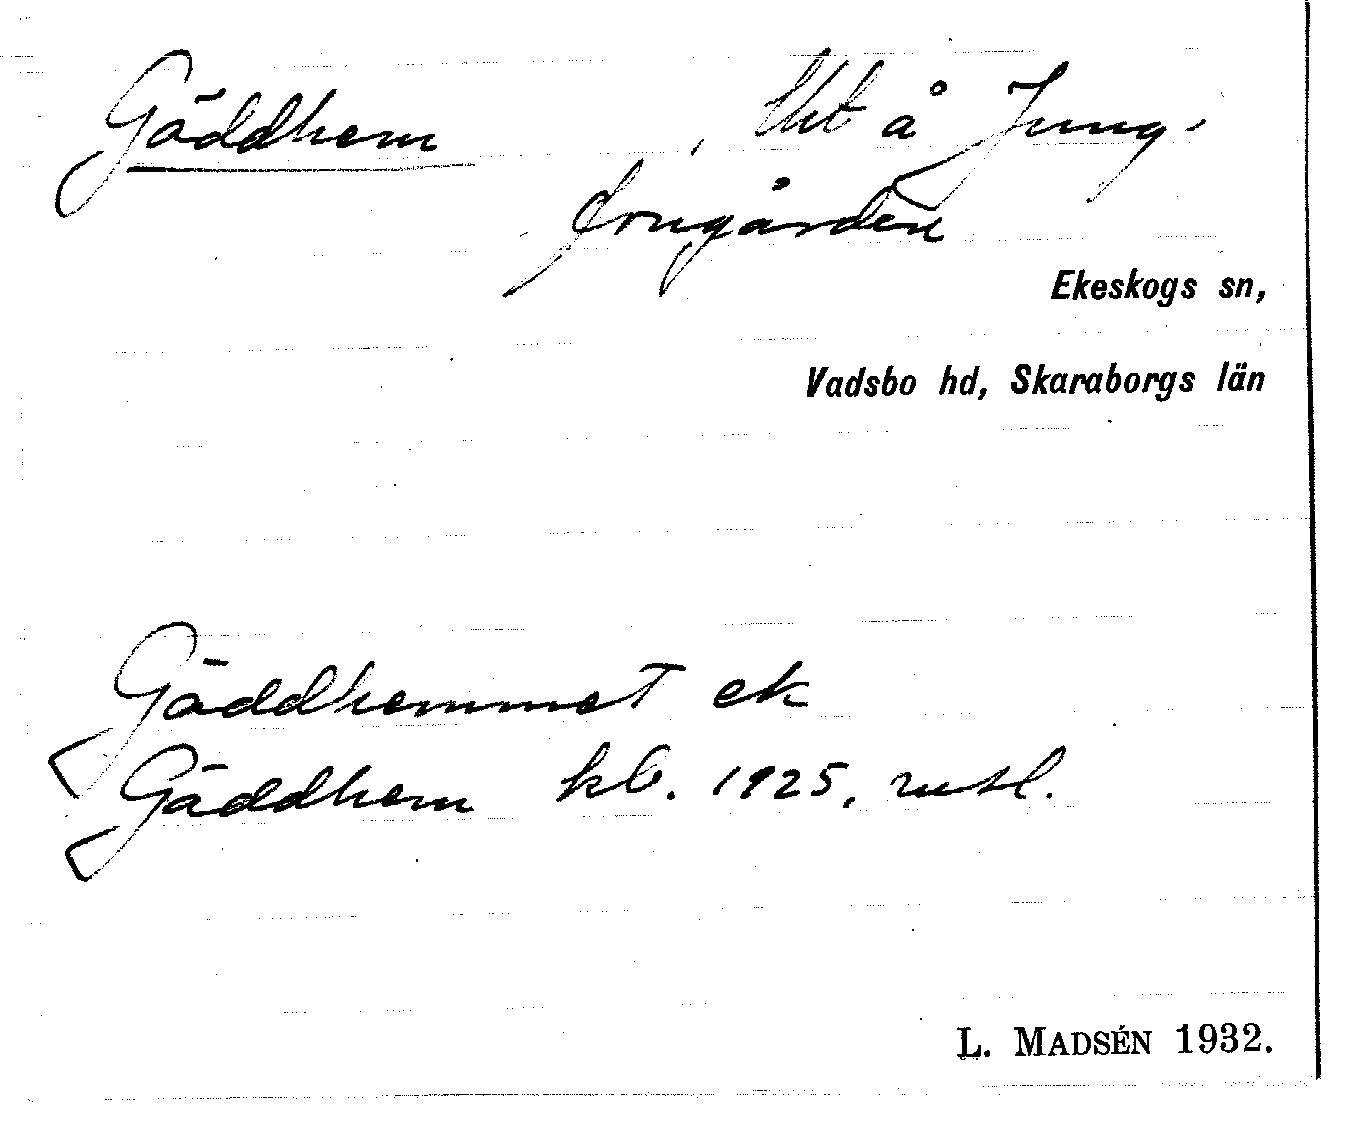 Gäddhem, lht å Jung-
frugården
Ekeskogs sn,
Vadsbo hd, Skaraborgs län
Gäddhemmet ek
Gäddhem kb. 1925, mtl.
L. MADSÉN 1932.